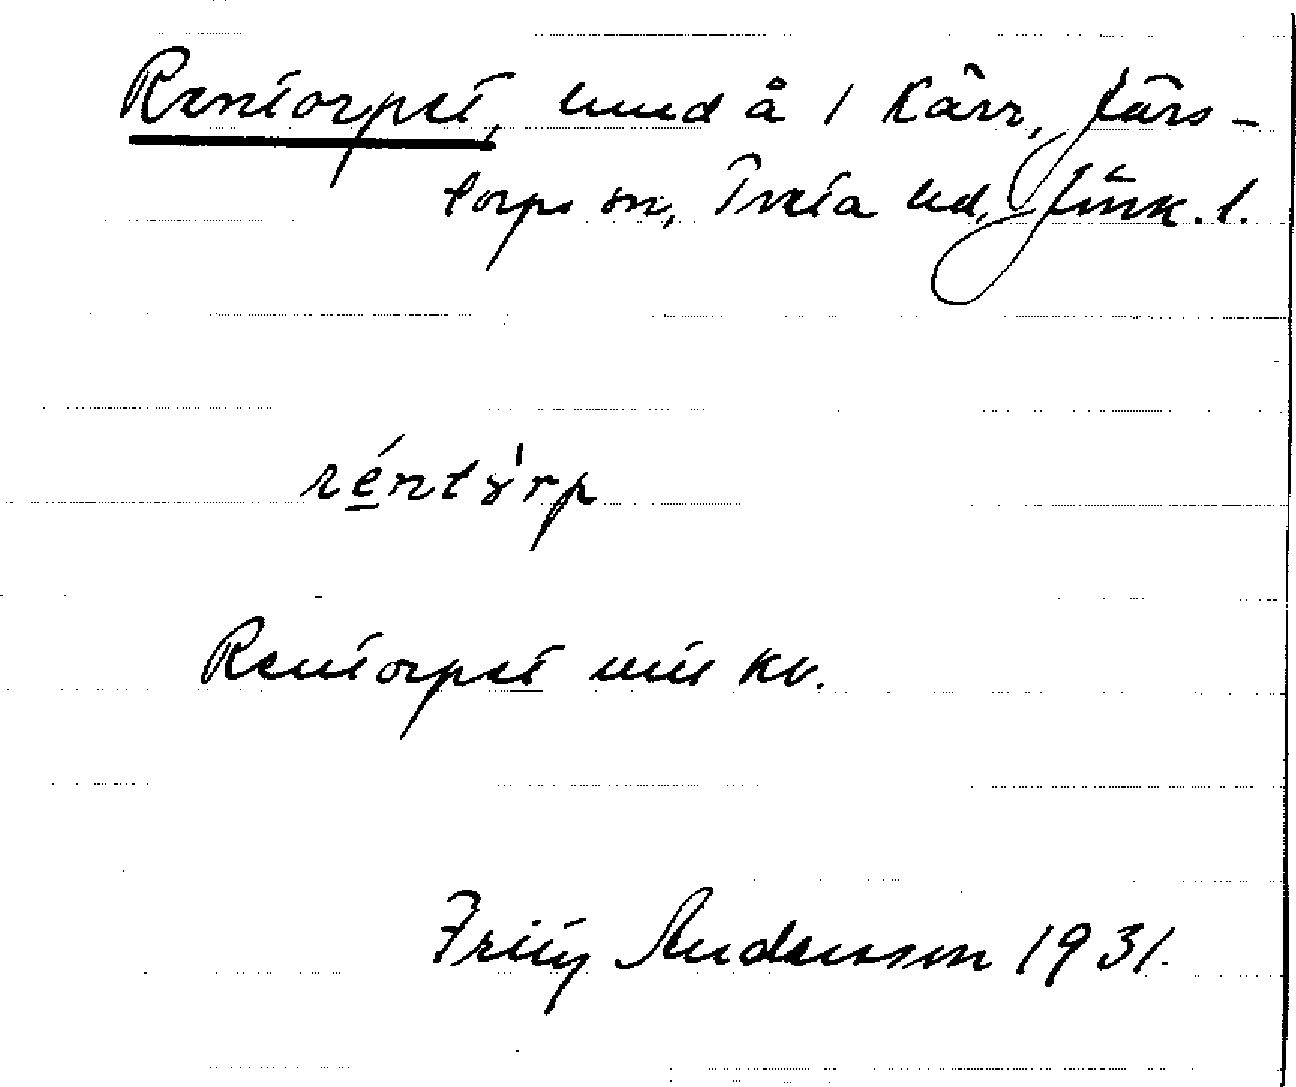 Rentorpet, hmd å 1 Kärr, Järs-
torps sn, Tveta hd, Jönk. l.
réntɤ̀rp
Rentorpet mtl kv.
Fritz Andersson 1931.